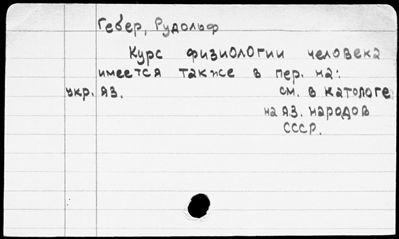 Гебер, Рудольф
Курс физиологии человека
имеется также в пер. на:
укр. яз. см. в катологе
на яз. народов
СССР.